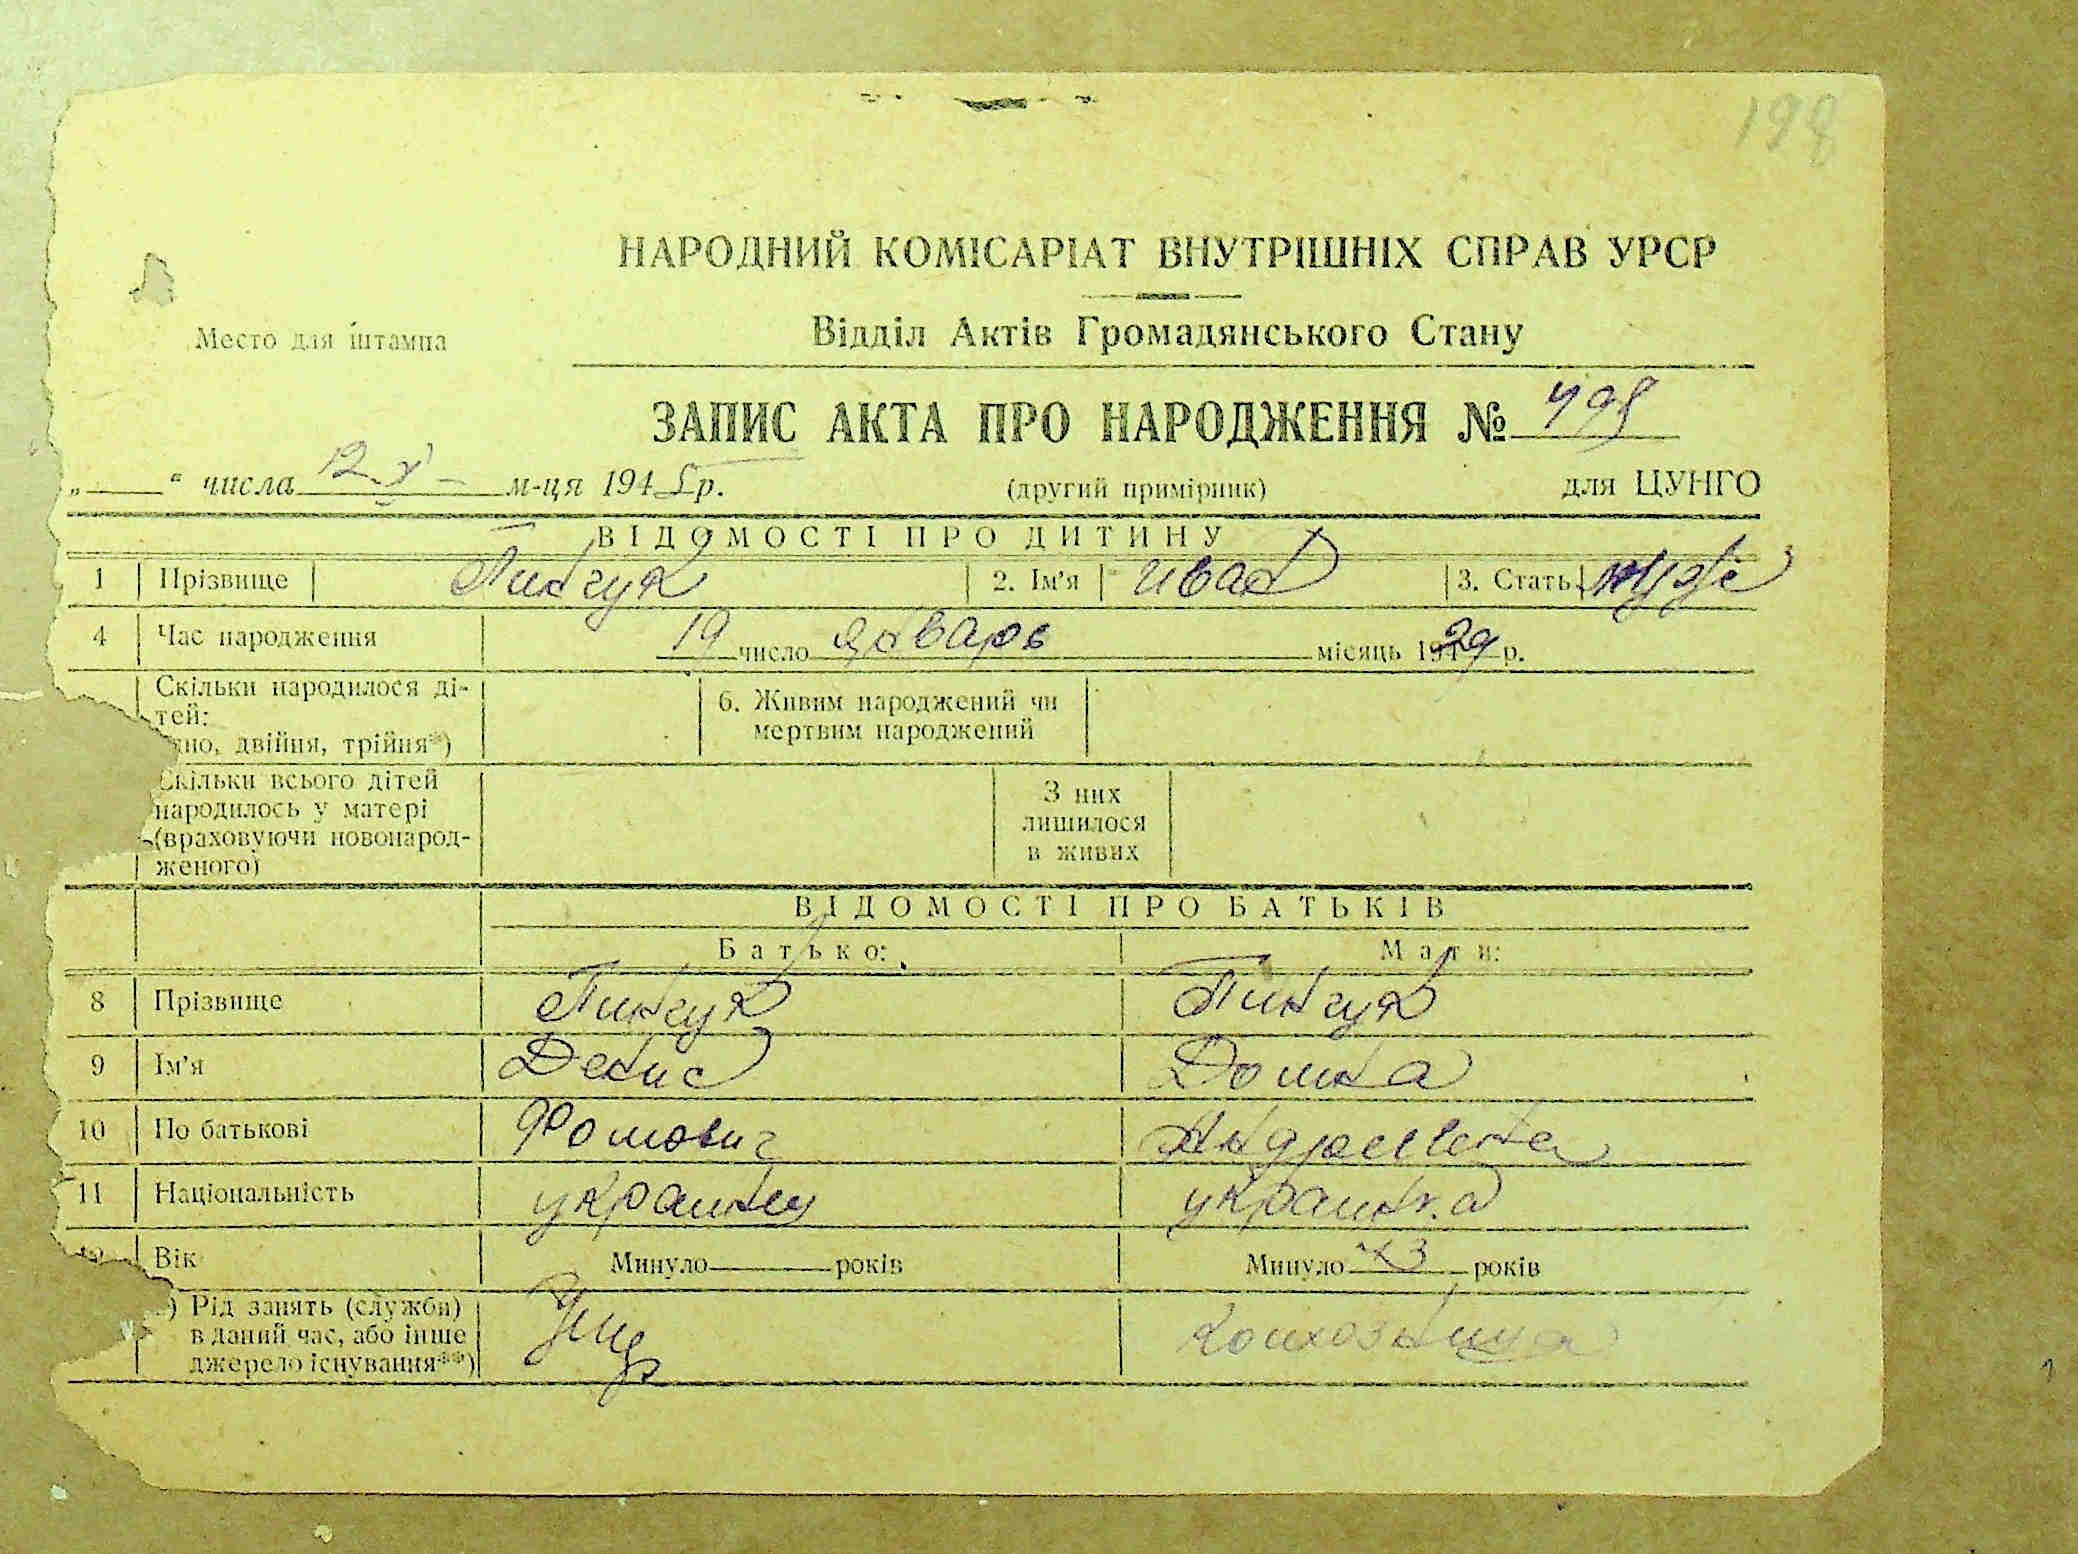 198
НАРОДНИЙ КОМІСАРІАТ ВНУТРІШНІХ СПРАВ УРСР
Место для штампа
Відділ Актів Громадянського Стану
ЗАПИС АКТА ПРО НАРОДЖЕННЯ №
„ “ числа 12 м-ця 1945 р. (другий примірник) для ЦУНГО
ВІДОМОСТІ ПРО ДИТИНУ
1 Прізвище Пинчук 2. Ім'я Иван 3. Стать муж
4 Час народження 19 число январь місяць 1929 р.
Скільки народилося ді-
тей: 6. Живим народжений чи
дно, двійня, трійня*) мертвим народжений
Скільки всього дітей З них
народилось у матері лишилося
(враховуючи новонарод- в живих
женого)
ВІДОМОСТІ ПРО БАТЬКІВ
Батько: Мати:
8 Прізвище Пинчук Пинчук
9 Ім'я Денис Домна
10 По батькові Фомович
11 Національність украинец украинка
12 Вік Минуло років Минуло 43 років
) Рід занять (служби)
в даний час, або інше колхозница
джерело існування**)